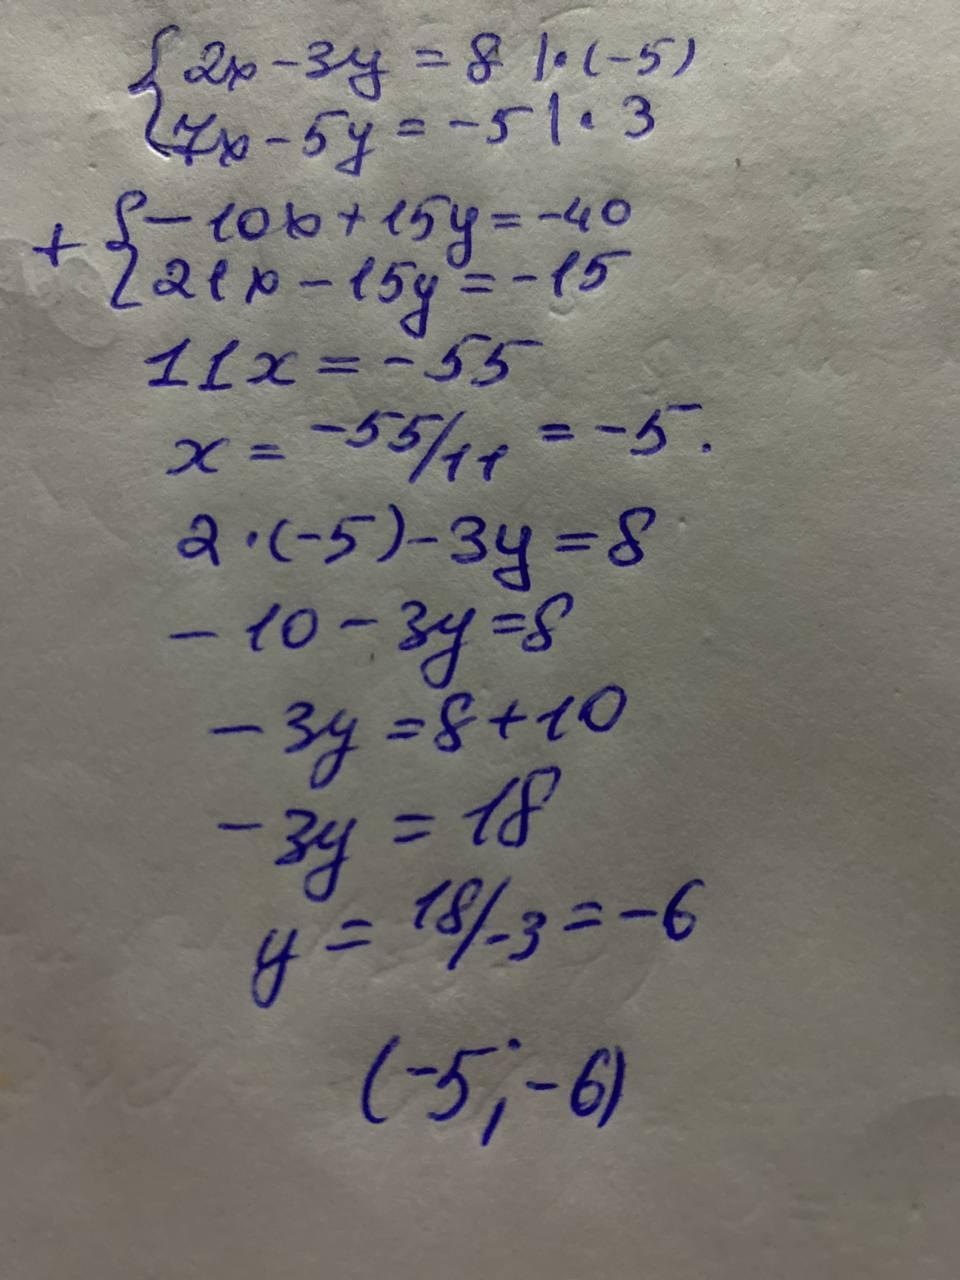 {2x-3y=8 |·(-5)
{7x-5y=-5 |·3
+ {-10x+15y=-40
{21x-15y=-15
11x=-55
x=-55/11=-5.
2·(-5)-3y=8
-10-3y=8
-3y=8+10
-3y=18
y=18/-3=-6
(-5;-6)